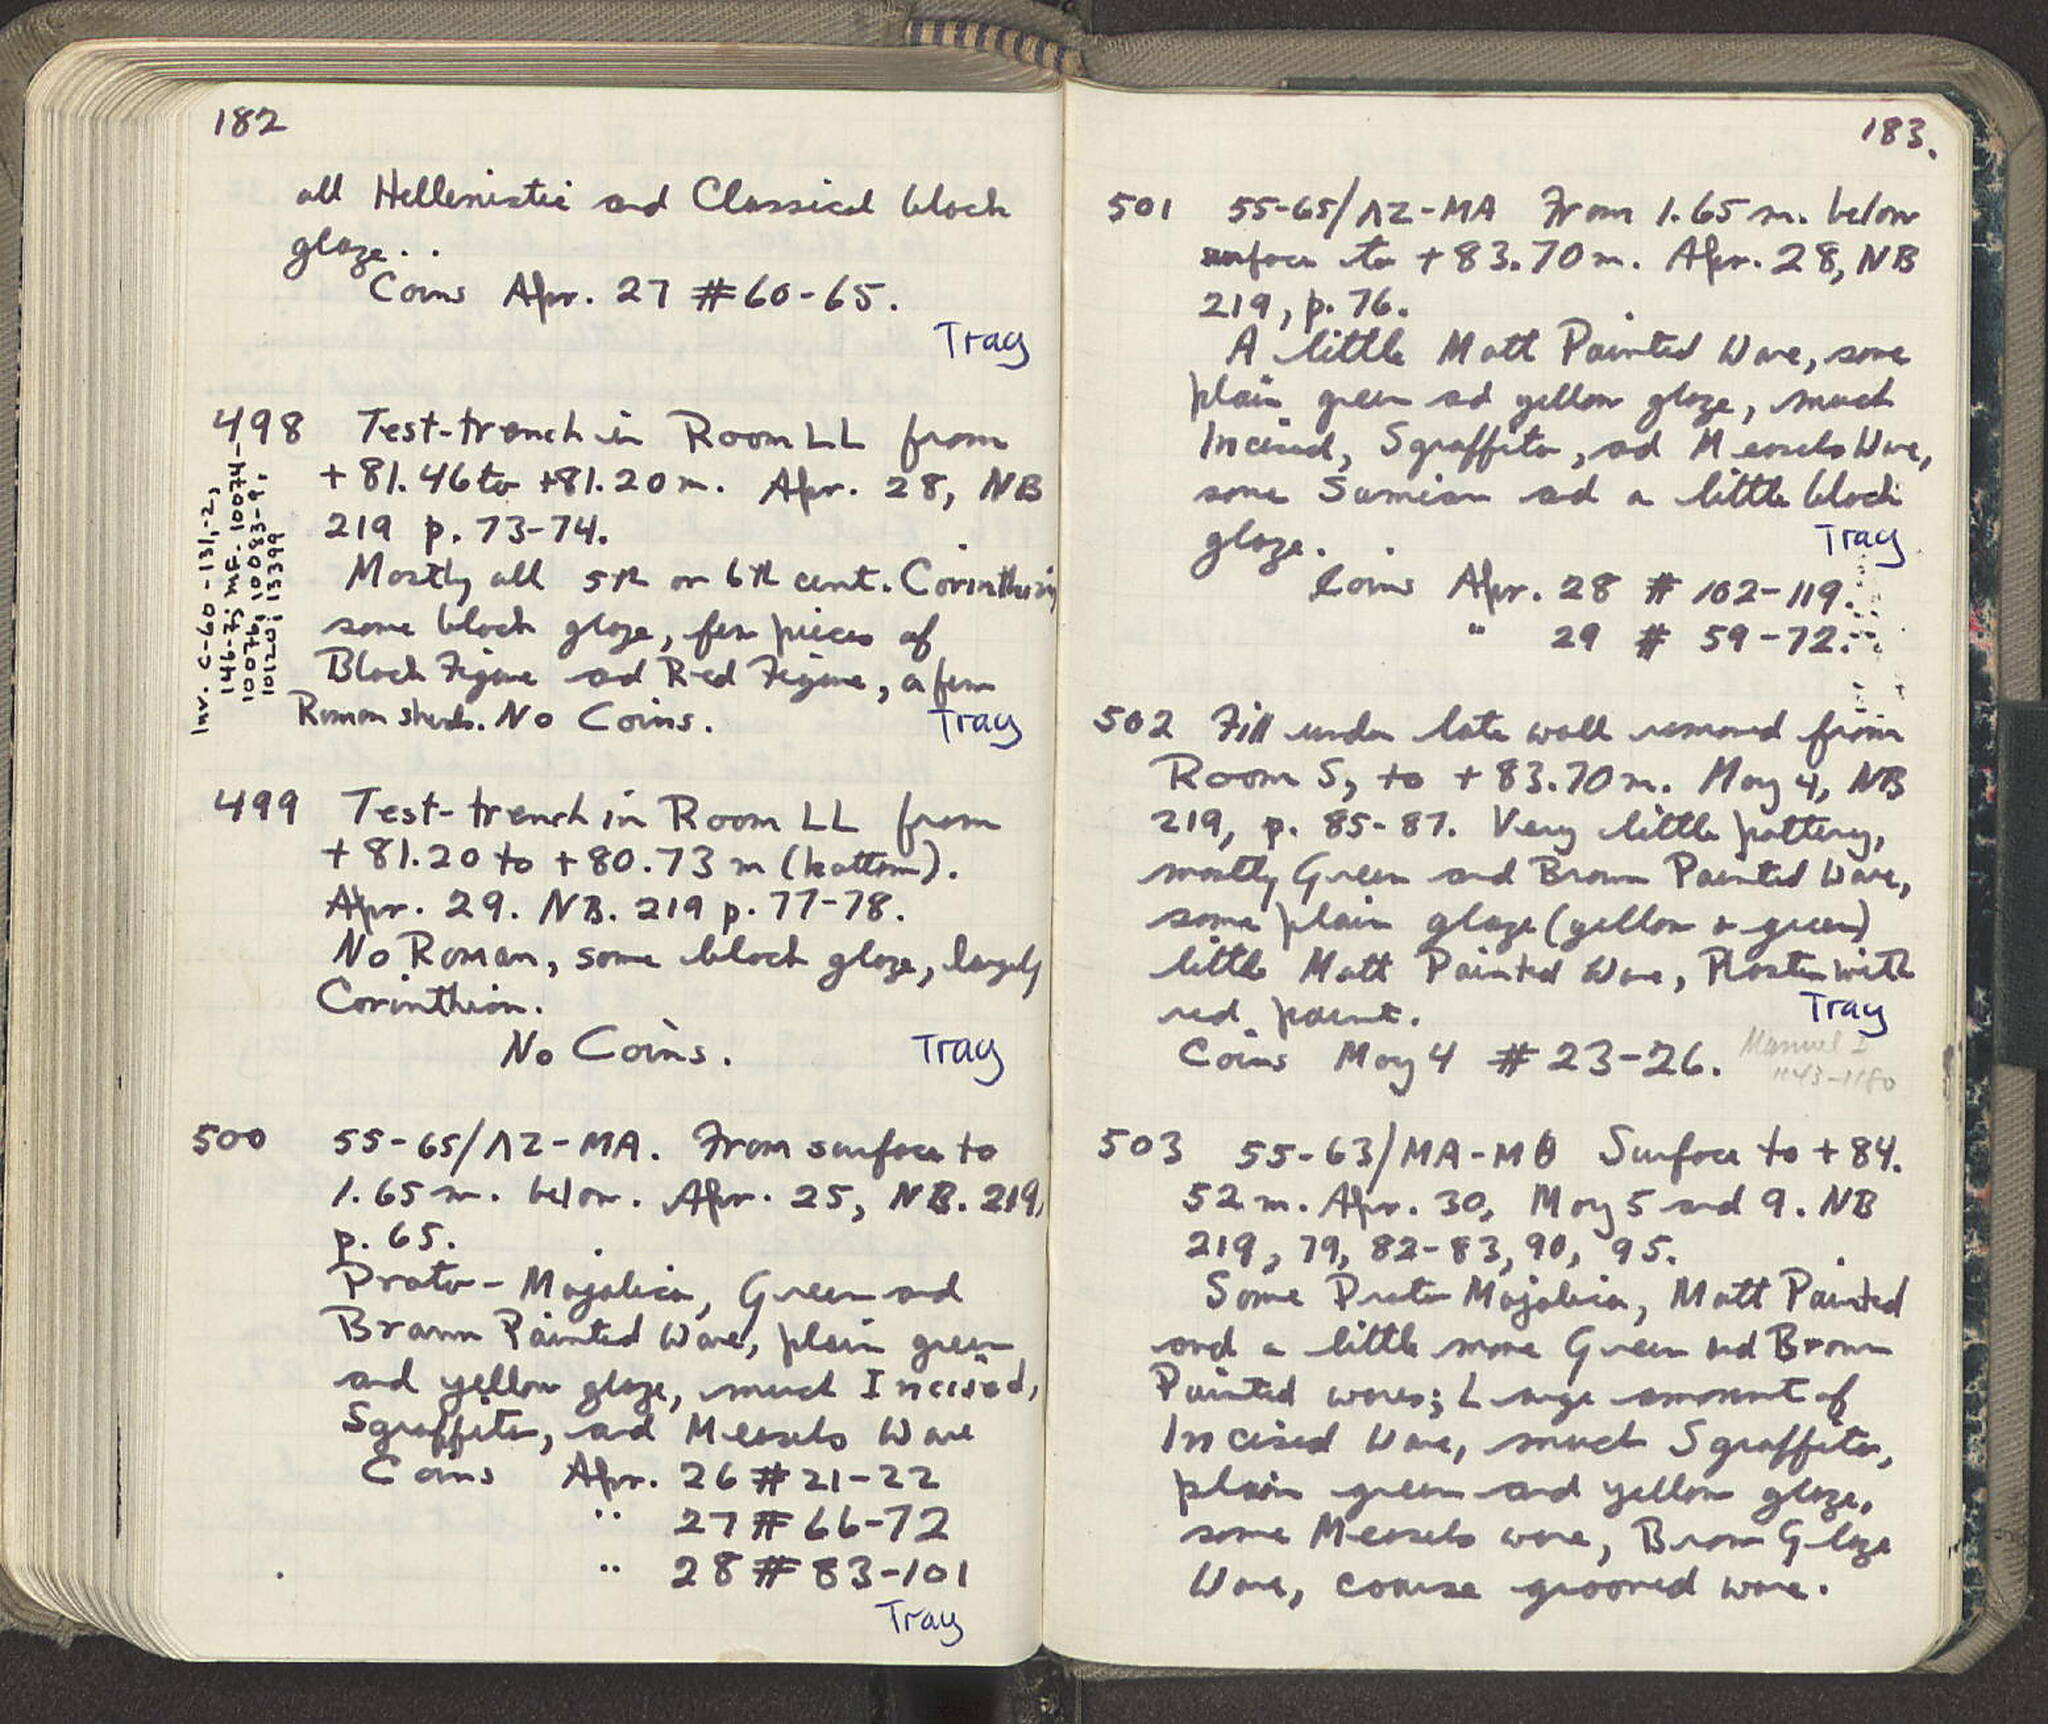 182
all Hellenistic and Classical black
glaze.
Coins Apr. 27 #60-65.
Tray
498 Test-trench in Room LL from
+81.46 to +81.20 m. Apr. 28, NB
219 p. 73-74.
Mostly all 5th or 6th cent. Corinthian,
some black glaze, few pieces of
Black Figure and Red Figure, a few
Roman sherds. No Coins.
Tray
Inv. C-60-131,-2,
146-7; MF. 10074-
10076, 10083-9,
10120; 13399
499 Test-trench in Room LL from
+81.20 to +80.73 m (bottom).
Apr. 29. NB. 219 p. 77-78.
No Roman, some black glaze, largely
Corinthian.
No Coins.
Tray
500 55-65/ΛZ-MA. From surface to
1.65 m. below. Apr. 25, NB. 219,
p. 65.
Proto-Majolica, Green and
Brown Painted Ware, plain green
and yellow glaze, much Incised,
Sgraffito, and Measels Ware
Coins Apr. 26 #21-22
" 27 #66-72
" 28 #83-101
Tray
183.
501 55-65/ΛZ-MA From 1.65 m. below
surface to +83.70 m. Apr. 28, NB
219, p. 76.
A little Matt Painted Ware, some
plain green and yellow glaze, much
Incised, Sgraffito, and Measels Ware,
some Samian and a little black
glaze.
Tray
Coins Apr. 28 # 102-119.
" 29 # 59-72.
502 Fill under late wall removed from
Room S, to +83.70 m. May 4, NB
219, p. 85-87. Very little pottery,
mostly Green and Brown Painted Ware,
some plain glaze (yellow & green)
little Matt Painted Ware, Plaster with
red paint.
Tray
Coins May 4 #23-26.
Manuel I
1143-1180
503 55-63/MA-MΘ Surface to +84.
52 m. Apr. 30, May 5 and 9. NB
219, 79, 82-83, 90, 95.
Some Proto Majolica, Matt Painted
and a little more Green and Brown
Painted wares; Large amount of
Incised Ware, much Sgraffito,
plain green and yellow glaze,
some Measels ware, Brown Glaze
Ware, coarse grooved ware.